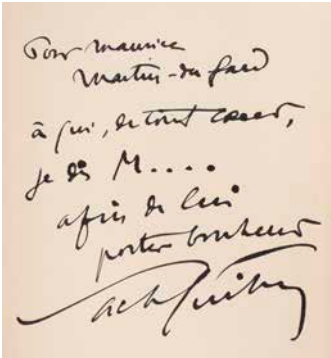 Pour Maurice
Martin-du Gard
à qui, de tout cœur,
je dis M....
afin de lui
porter bonheur
Sacha Guitry